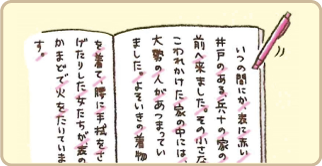 いつの間にか、表に赤い
井戸のある兵十の家の
前へ来ました。その小さな
こわれかけた家の中には、
大勢の人があつまってい
ました。よそいきの着物
を着て、腰に手拭をさ
げたりした女たちが、表の
かまどで火をたいていま
す。